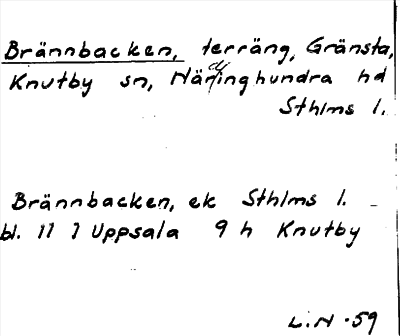 Brännbacken, terräng, Gränsta,
Knutby sn, Närdinghundra hd
Sthlms l.
Brännbacken, ek Sthlms l.
bl. 11 I Uppsala 9 h Knutby
L.N -59